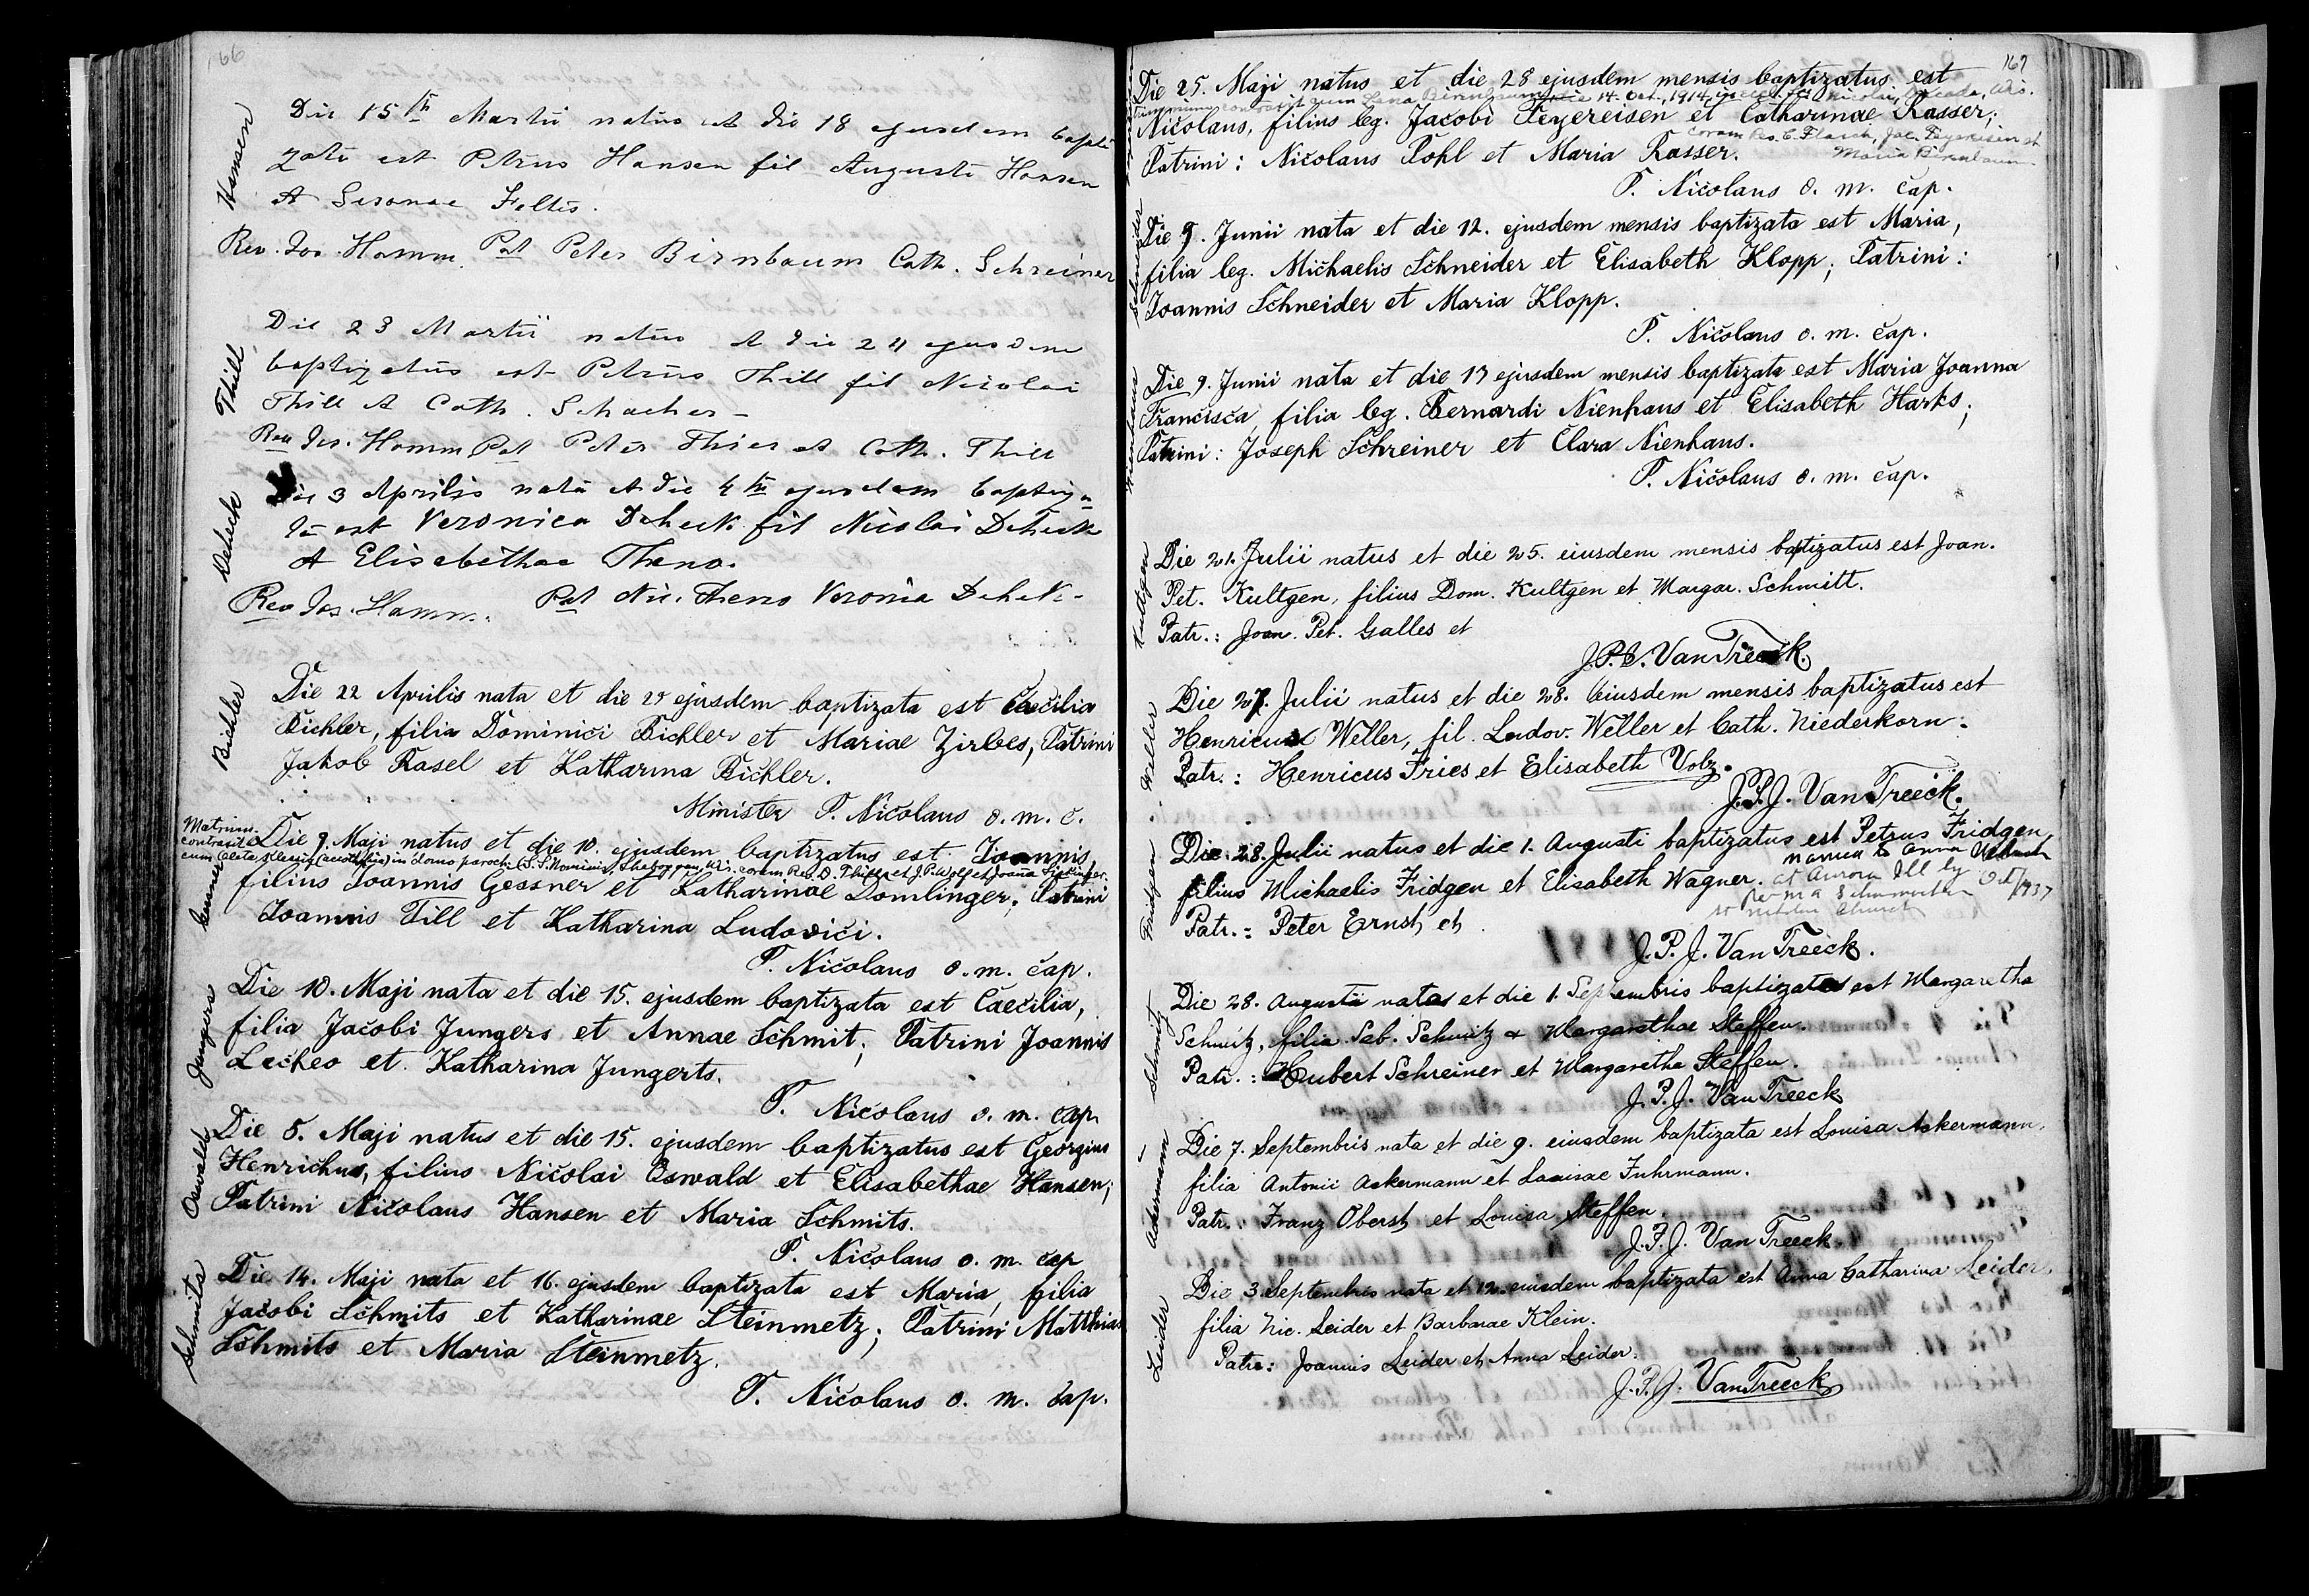 166
Hansen
Die 15th Martii natus et die 18 ejusdem bapti
zatu est Petrus Hansen fil Augusti Hansen
et Feltes.
Rev. Jos. Hamm. Pat Peter Birnbaum Cath. Schreiner
Thill
Die 23 Martii natus et die 24 ejusdem
baptizatus est Petrus Thill fil Nicolai
Thill et Cath. Schacher -
Rev Jos. Hamm Pat Peter Thier et Cath. Thill
Deheck
Die 3 Aprilis nata et die 4th ejusdem baptiza=
ta est Veronica Deheck fil Nicolai Deheck
et Elisabethae Theno.
Rev Jos. Hamm. Pat Nic. Theno Veronia Deheck-
Bichler
Die 22 Aprilis nata et die ejusdem baptizata est Caecilia
Bichler, filia Dominici Bichler et Mariae Zirbes, Patrini
Jakob Rasel et Katharina Bichler.
Minister P. Nicolaus o. m. c.
Gessner
Matrim.
contraxit
Die 9. Maji natus et die 10. ejusdem baptizatus est Joannis,
cum Oleta Klessig (acatholica) in domo paroch. S.S. Nominis, Sheboygan, Wis. coram Rev. D. Thill et J.P. Wolf et Joana
filius Joannis Gessner et Katharinae Domlinger; Patrini
Joannis Till et Katharina Ludovici.
P. Nicolaus o. m. cap.
Jungers
Die 10. Maji nata et die 15. ejusdem baptizata est Caecilia,
filia Jacobi Jungers et Annae Schmit; Patrini Joannis
Leckeo et Katharina Jungerts.
P. Nicolaus o. m. cap.
Oswald
Die 5. Maji natus et die 15. ejusdem baptizatus est Georgius
Henrichus, filius Nicolai Oswald et Elisabethae Hansen;
Patrini Nicolaus Hansen et Maria Schmits.
P. Nicolaus o. m. cap
Schmits
Die 14. Maji nata et 16. ejusdem baptizata est Maria, filia
Jacobi Schmits et Katharinae Steinmetz; Patrini Matthias
Schmits et Maria Steinmetz.
P. Nicolaus o. m. cap.
167
Die 25. Maji natus et die 28 ejusdem mensis baptizatus est
matrimonium contraxit cum Lena Birnbaum die 14. Oct., 1914, in eccl. Sti Nicolai, Dacada, Wis.
Nicolaus, filius leg. Jacobi Feyereisen et Catharinae Rasser;
coram Rev. C. Flasch, Jac. Feyereisen et
Maria Birnbaum
Patrini: Nicolaus Pohl et Maria Rasser.
P. Nicolaus o. m. cap.
Schneider
Die 9. Junii nata et die 12. ejusdem mensis baptizata est Maria,
filia leg. Michaelis Schneider et Elisabeth Klopp; Patrini:
Joannis Schneider et Maria Klopp.
P. Nicolaus o. m. cap.
Nienhaus
Die 9. Junii nata et die 13 ejusdem mensis baptizata est Maria Joanna
Francisca, filia leg. Bernardi Nienhaus et Elisabeth Harks;
Patrini: Joseph Schreiner et Clara Nienhaus.
P. Nicolaus o. m. cap.
Kultgen
Die 21. Julii natus et die 25. eiusdem mensis baptizatus est Joan.
Pet. Kultgen, filius Dom. Kultgen et Margar. Schmitt.
Patr.: Joan. Pet. Galles et
J.P.J. Van Treeck.
Weller
Die 27. Julii natus et die 28. eiusdem mensis baptizatus est
Henricus Weller, fil. Ludov. Weller et Cath. Niederkorn.
Patr.: Henricus Fries et Elisabeth Volz.
J.P.J. Van Treeck.
Fridgen
Die 28. Julii natus et die 1. Augusti baptizatus est Petrus Fridgen,
filius Michaelis Fridgen et Elisabeth Wagner.
married to Anna
at Aurora Ill by Oct/1937
Rev M A Schumacher
St Nicholas Church
Patr.: Peter Ernst, et
J.P.J. Van Treeck.
Schmitz
Die 28. Augusti nata et die 1. Septembris baptizata est Margaretha
Schmitz, filia Seb. Schmitz & Margarethae Steffen.
Patr.: Hubert Schreiner et Margaretha Steffen.
J.P.J. Van Treeck
Ackermann
Die 7. Septembris nata et die 9. eiusdem baptizata est Louisa Ackermann,
filia Antonii Ackermann et Louisae Fuhrmann.
Patr.: Franz Oberst et Louisa Steffen.
J.P.J. Van Treeck
Leider
Die 3. Septembris nata et 12. eiusdem baptizata est Anna Catharina Leider,
filia Nic. Leider et Barbarae Klein.
Patr.: Joannis Leider et Anna Leider.
J.P.J. Van Treeck